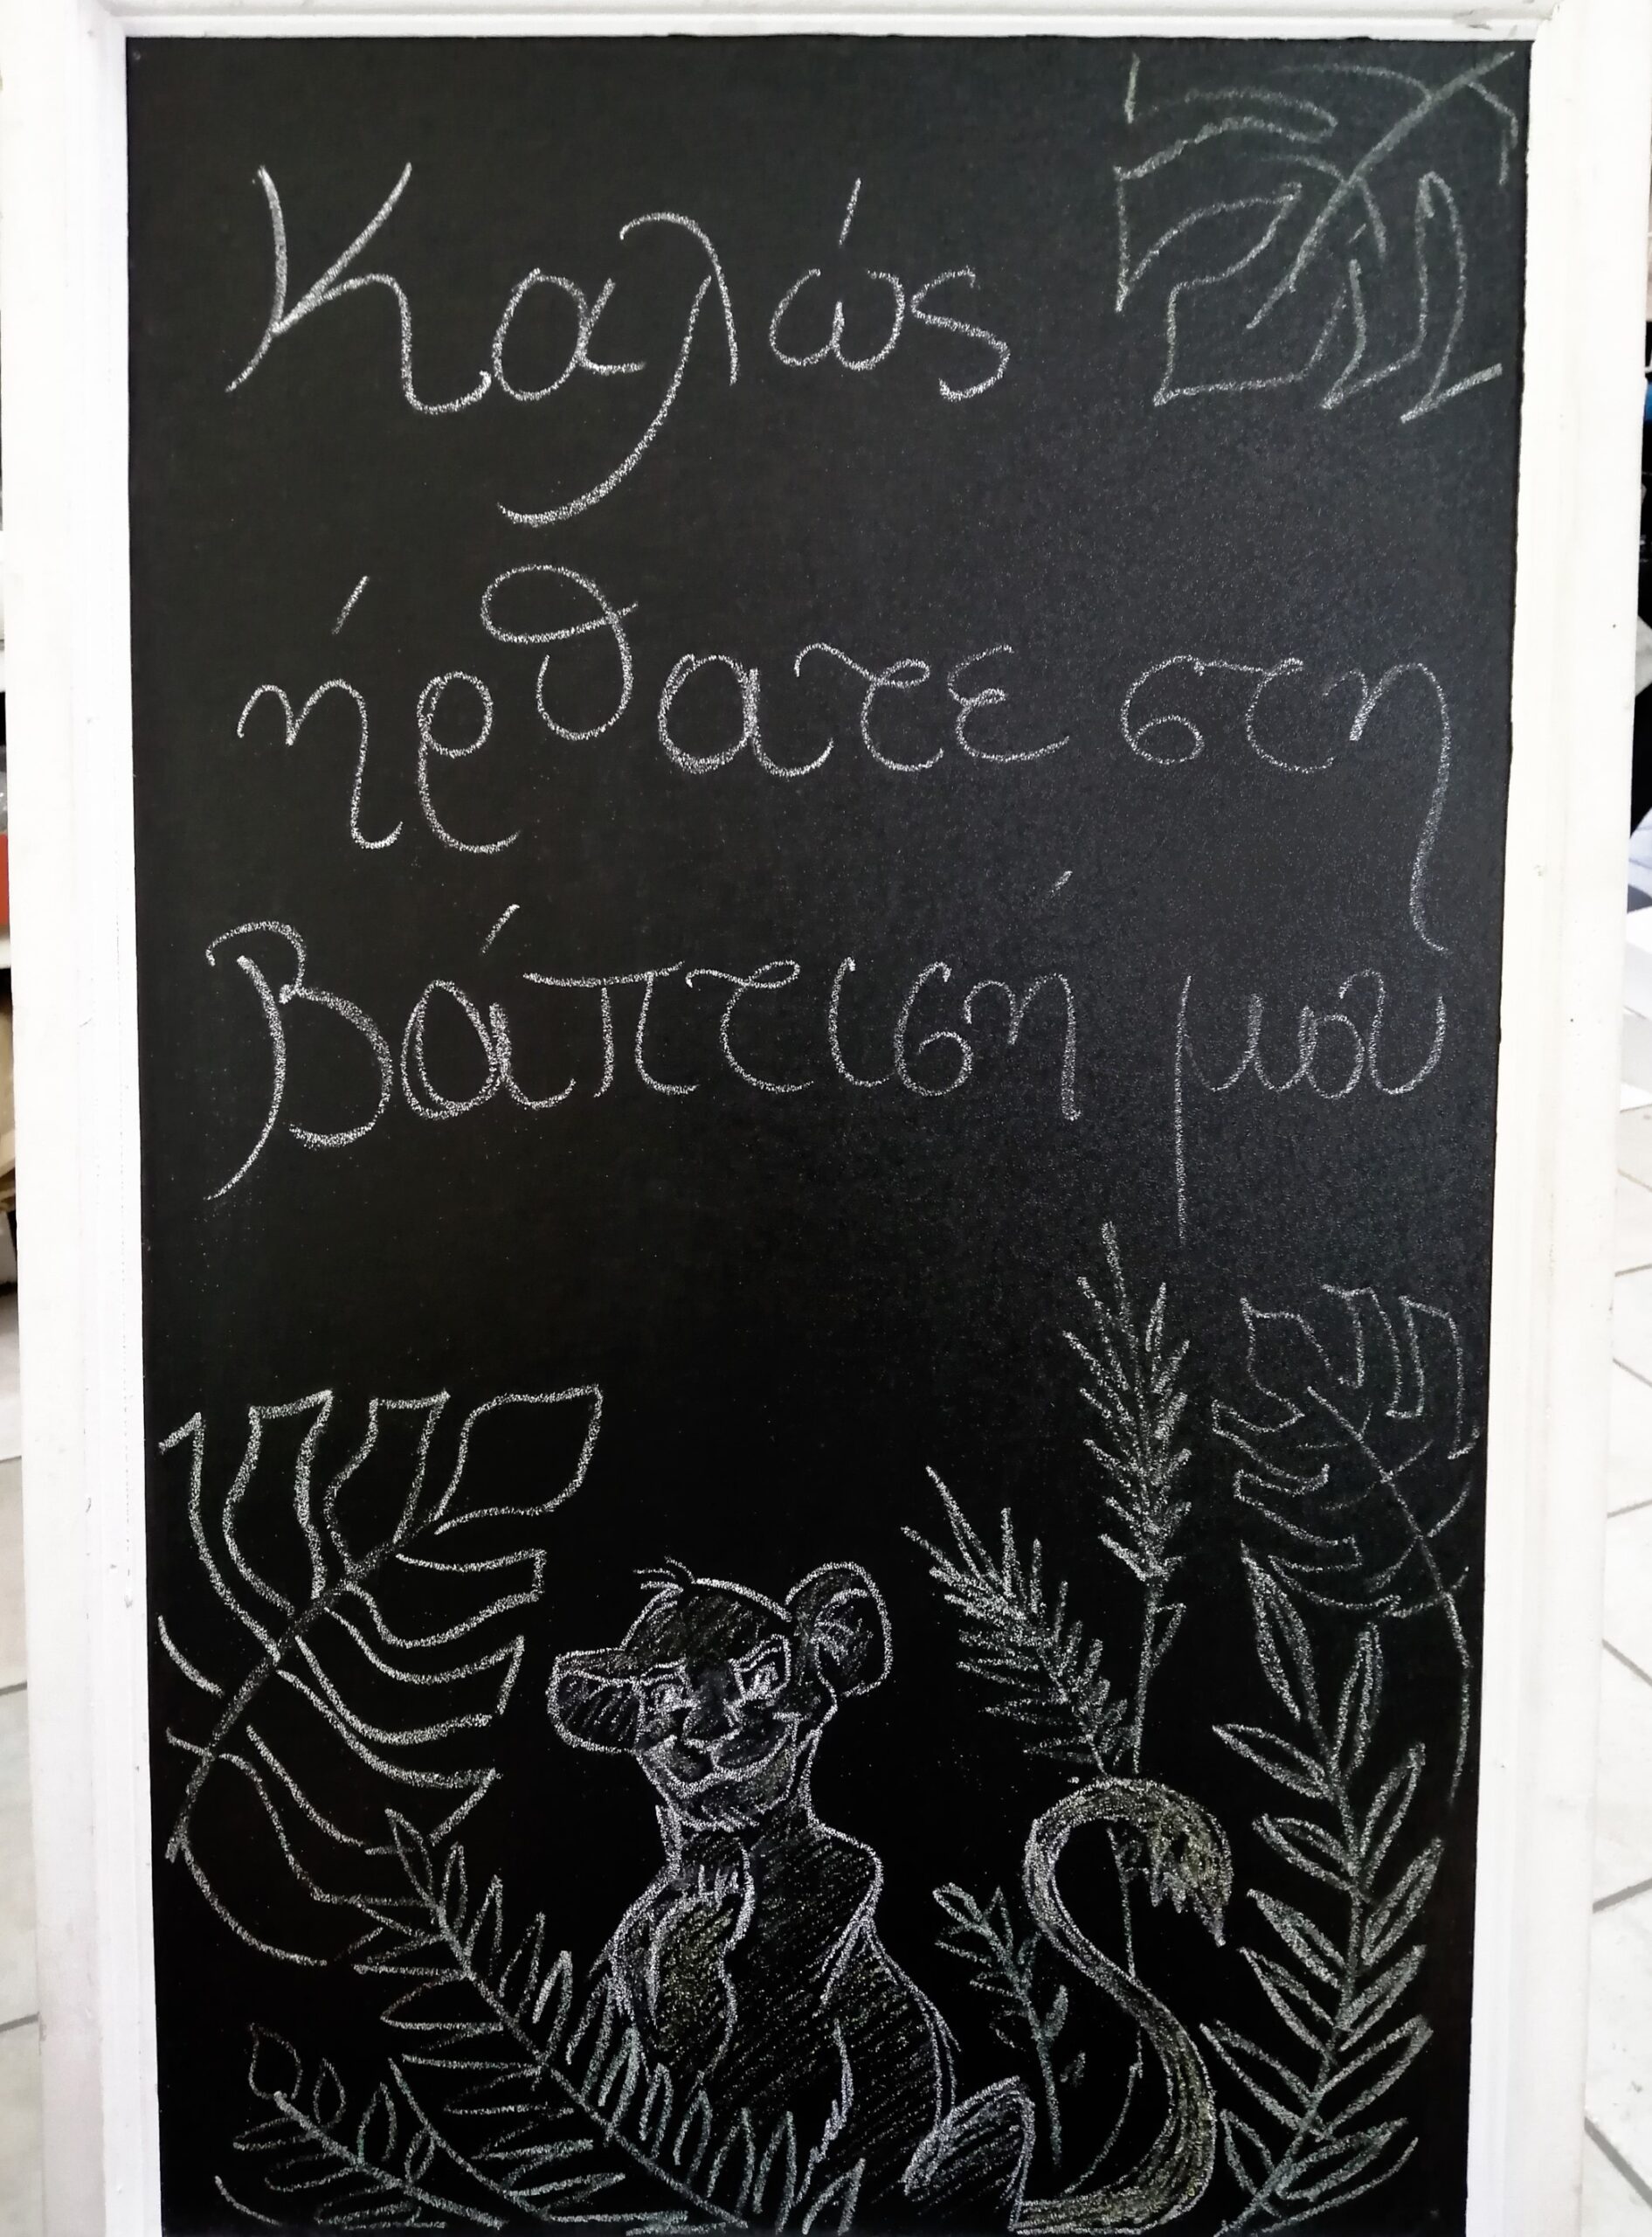 Καλώς
ήρθατε στη
Βάπτιση μου